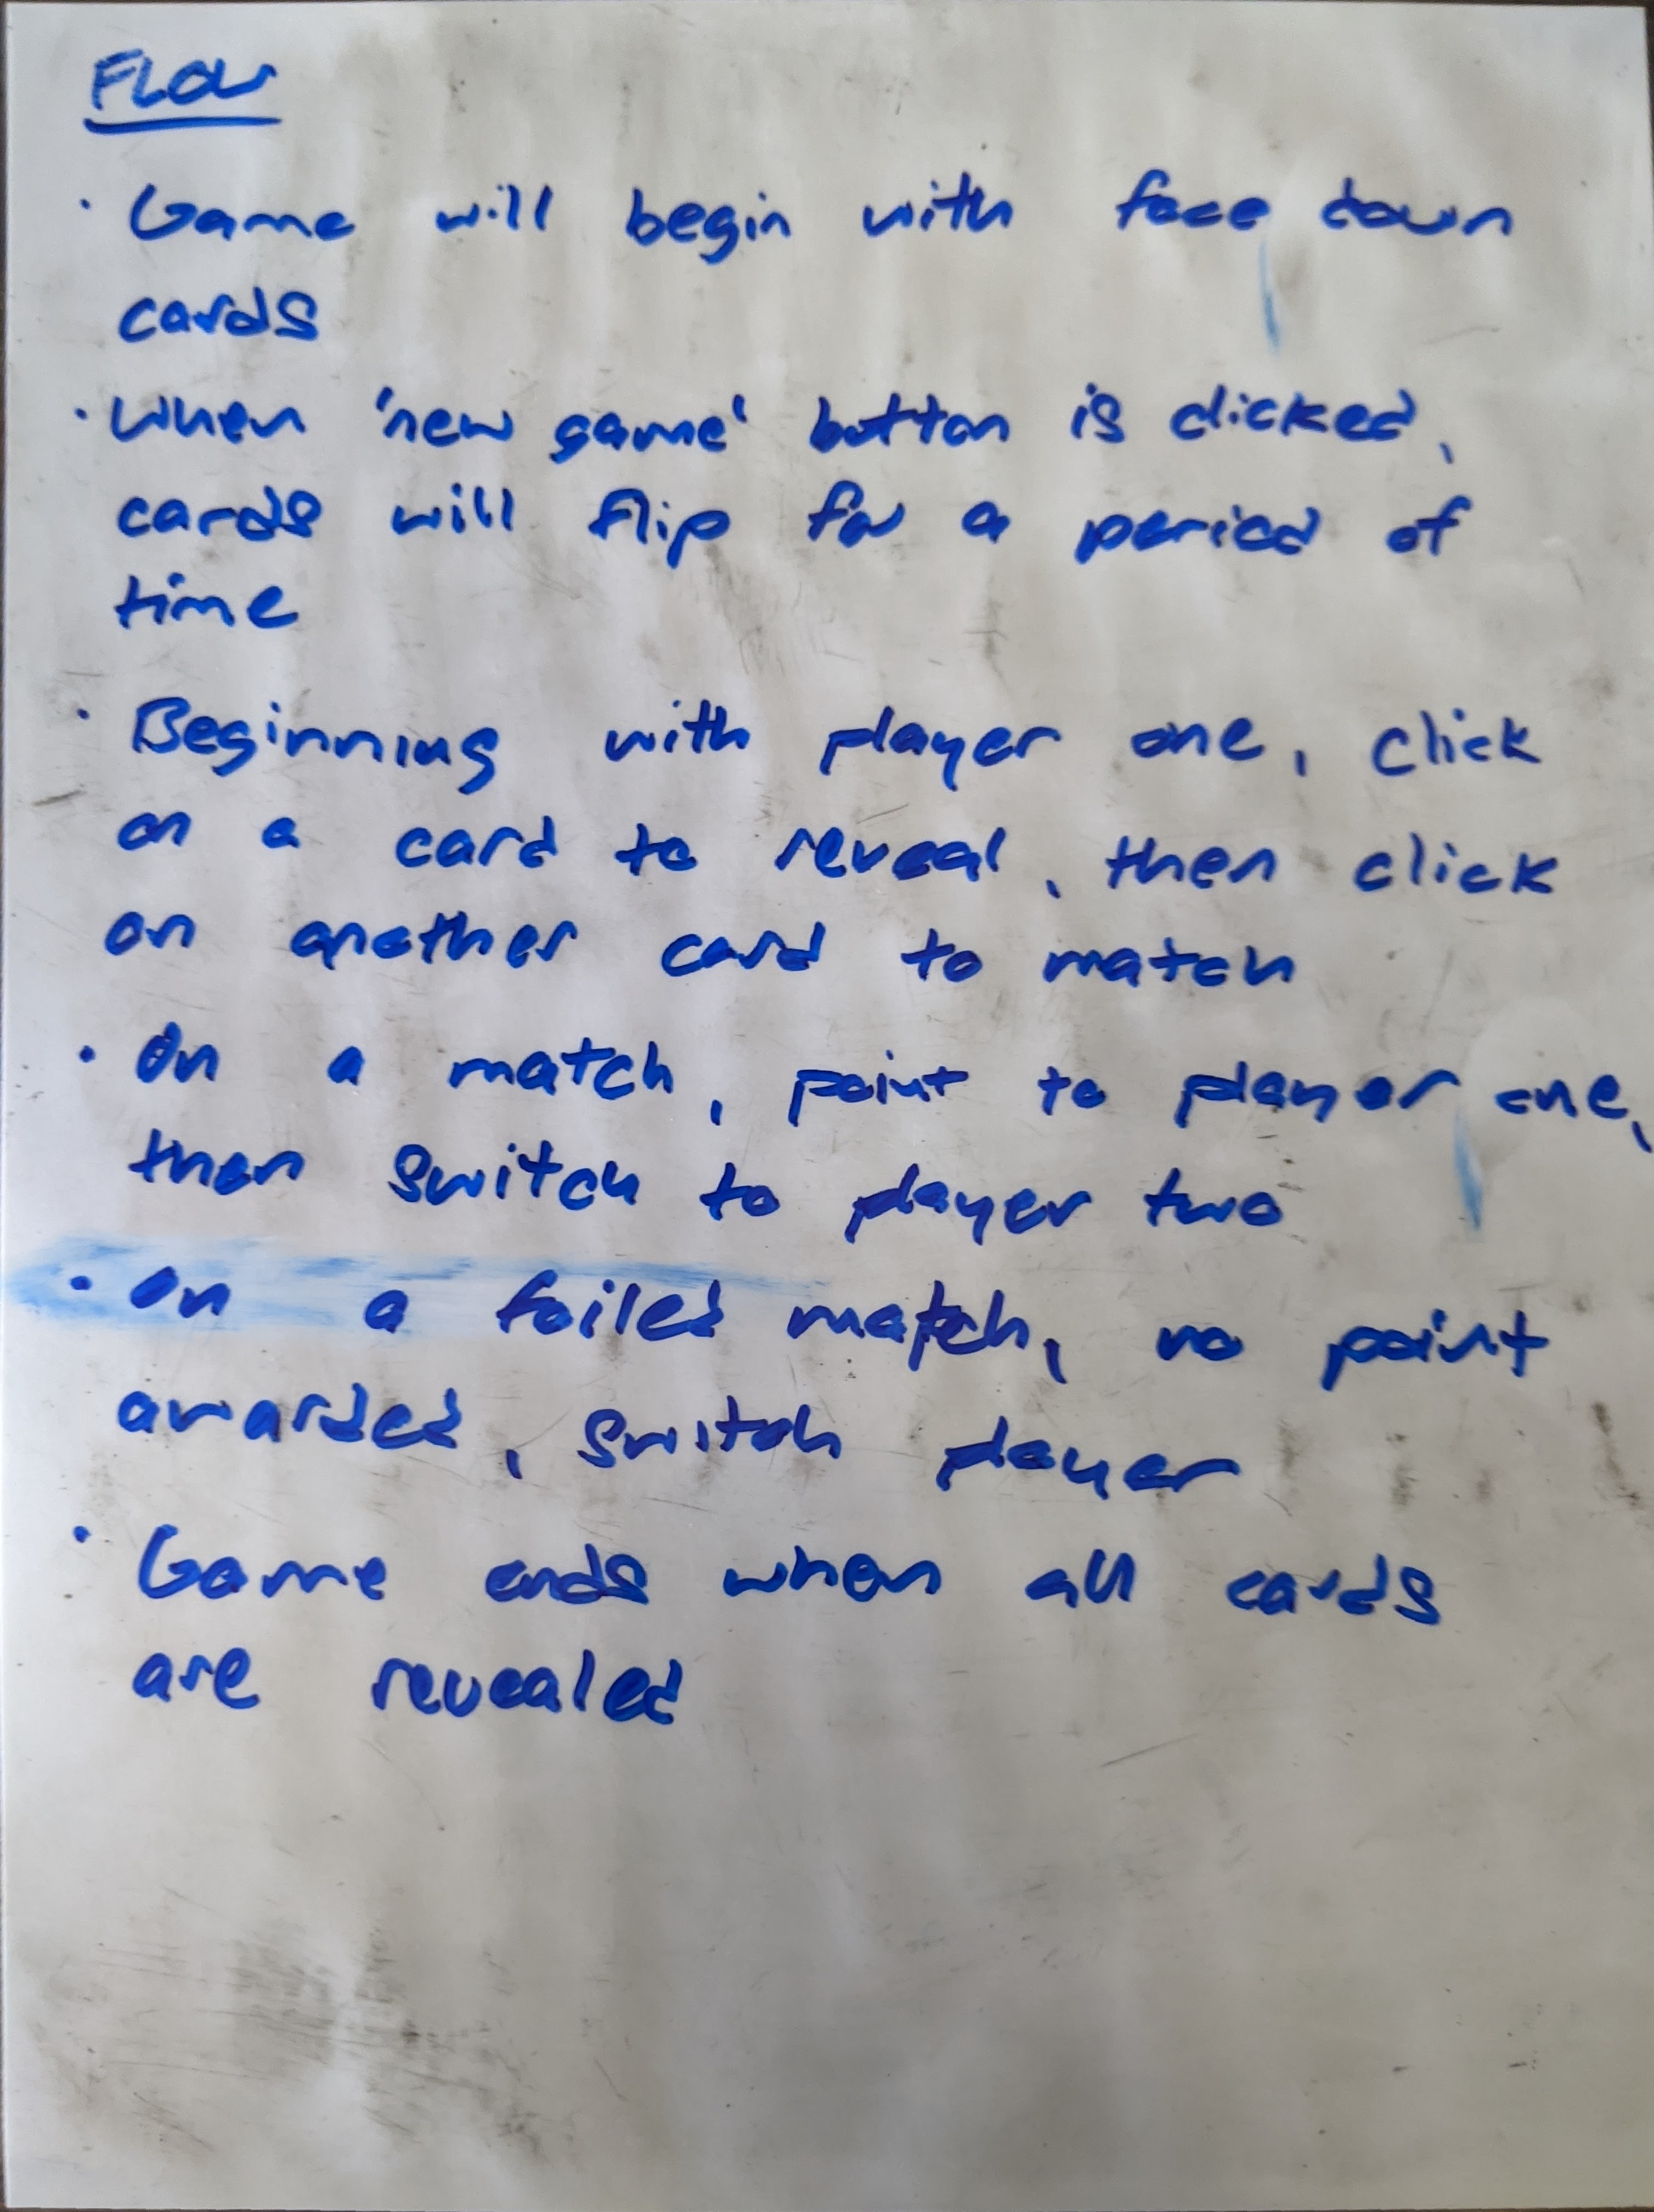 FLOW
· Game will begin with face down
cards
· When 'new game' button is clicked,
cards will flip for a period of
time
· Beginning with player one, click
on a card to reveal, then click
on another card to match
· On a match, point to player one,
then switch to player two
· On a failed match, no point
awarded, switch player
· Game ends when all cards
are revealed